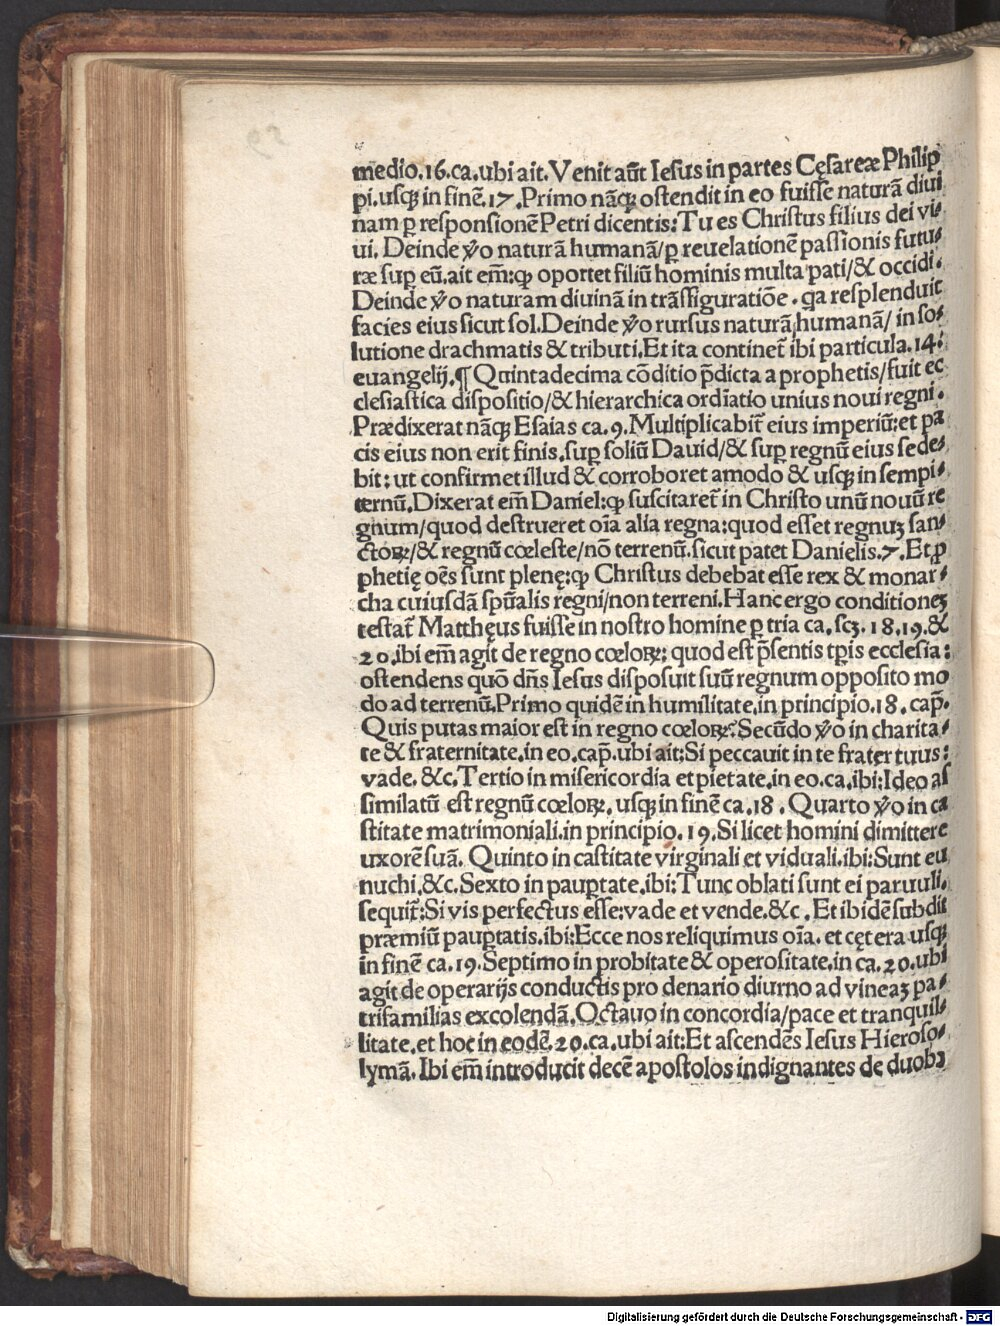 medio.16.ca.ubi ait. Venit aūt Iesus in partes Cęsareæ Philip
pi.usqꝫ in finē.17.Primo nāqꝫ ostendit in eo fuisse naturā diui
nam ꝑ responsionē Petri dicentis: Tu es Christus filius dei vi⸗
ui. Deinde v̊o naturā humanā/ꝑ reuelationē passionis futu⸗
ræ suꝑ eū.ait em̄:ꝙ oportet filiū hominis multa pati/& occidi.
Deinde v̊o naturam diuinā in trāsfiguratiōe.qa resplenduit
facies eius sicut sol.Deinde v̊o rursus naturā humanā/ in so⸗
lutione drachmatis & tributi.Et ita continet̄ ibi particula.14.
euangelij.¶ Quintadecima cōditio p̄dicta a prophetis/fuit ec
clesiastica dispositio/& hierarchica ordīatio unius noui regni.
Prædixerat nāqꝫ Esaias ca.9.Multiplicabit̄ eius imperiū:et pa
cis eius non erit finis.suꝑ soliū Dauid/& suꝑ regnū eius sede⸗
bit: ut confirmet illud & corroboret amodo & usqꝫ in sempi⸗
ternū.Dixerat em̄ Daniel:ꝙ suscitaret̄ in Christo unū nouū re
gnum/quod destrueret oīa alia regna:quod esset regnuꝫ san⸗
ctoꝝ/& regnū cœleste/nō terrenū.sicut patet Danielis.7.Et ꝓ
phetię oēs sunt plenę:ꝙ Christus debebat esse rex & monar⸗
cha cuiusdā spūalis regni/non terreni.Hanc ergo conditioneꝫ
testat̄ Matthęus fuisse in nostro homine ꝑ tria ca.scꝫ.18.19.&
20.ibi em̄ agit de regno cœloꝝ: quod est p̄sentis tp̄is ecclesia:
ostendens quō dn̄s Iesus disposuit suū regnum opposito mo
do ad terrenū.Primo quidē in humilitate.in principio.18.cap̄.
Quis putas maior est in regno cœloꝝ? Secūdo v̊o in charita⸗
te & fraternitate.in eo.cap̄.ubi ait:Si peccauit in te frater tuus:
vade. &c.Tertio in misericordia et pietate.in eo.ca.ibi:Ideo as
similatū est regnū cœloꝝ. usqꝫ in finē ca.18. Quarto v̊o in ca
stitate matrimoniali.in principio.19.Si licet homini dimittere
uxorē suā. Quinto in castitate virginali et viduali.ibi:Sunt eu
nuchi.&c.Sexto in pauꝑtate.ibi:Tunc oblati sunt ei paruuli.
sequit̄:Si vis perfectus esse:vade et vende.&c. Et ibidē subdit
præmiū pauꝑtatis.ibi:Ecce nos reliquimus oīa. et cętera usqꝫ
in finē ca.19.Septimo in probitate & operositate.in ca.20.ubi
agit de operarijs conductis pro denario diurno ad vineaꝫ pa⸗
trisfamilias excolendā.Octauo in concordia/pace et tranquil⸗
litate.et hoc in eodē.20.ca.ubi ait:Et ascendēs Iesus Hieroso⸗
lymā. Ibi em̄ introducit decē apostolos indignantes de duobꝫ
Digitalisierung gefördert durch die Deutsche Forschungsgemeinschaft - DFG